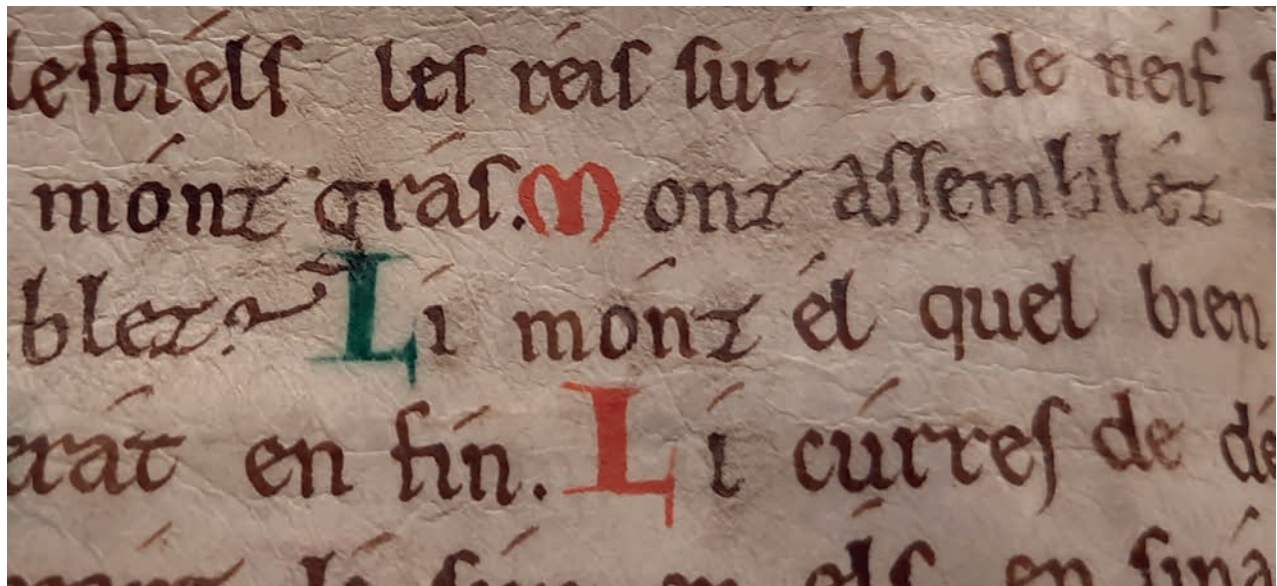 leſtiélſ leſ réiſ ſur li. de néif
mónz gráſ. Monz aſſembléz
blez? Li mónz él quel bien
erát en fín. Li cúrreſ de dé